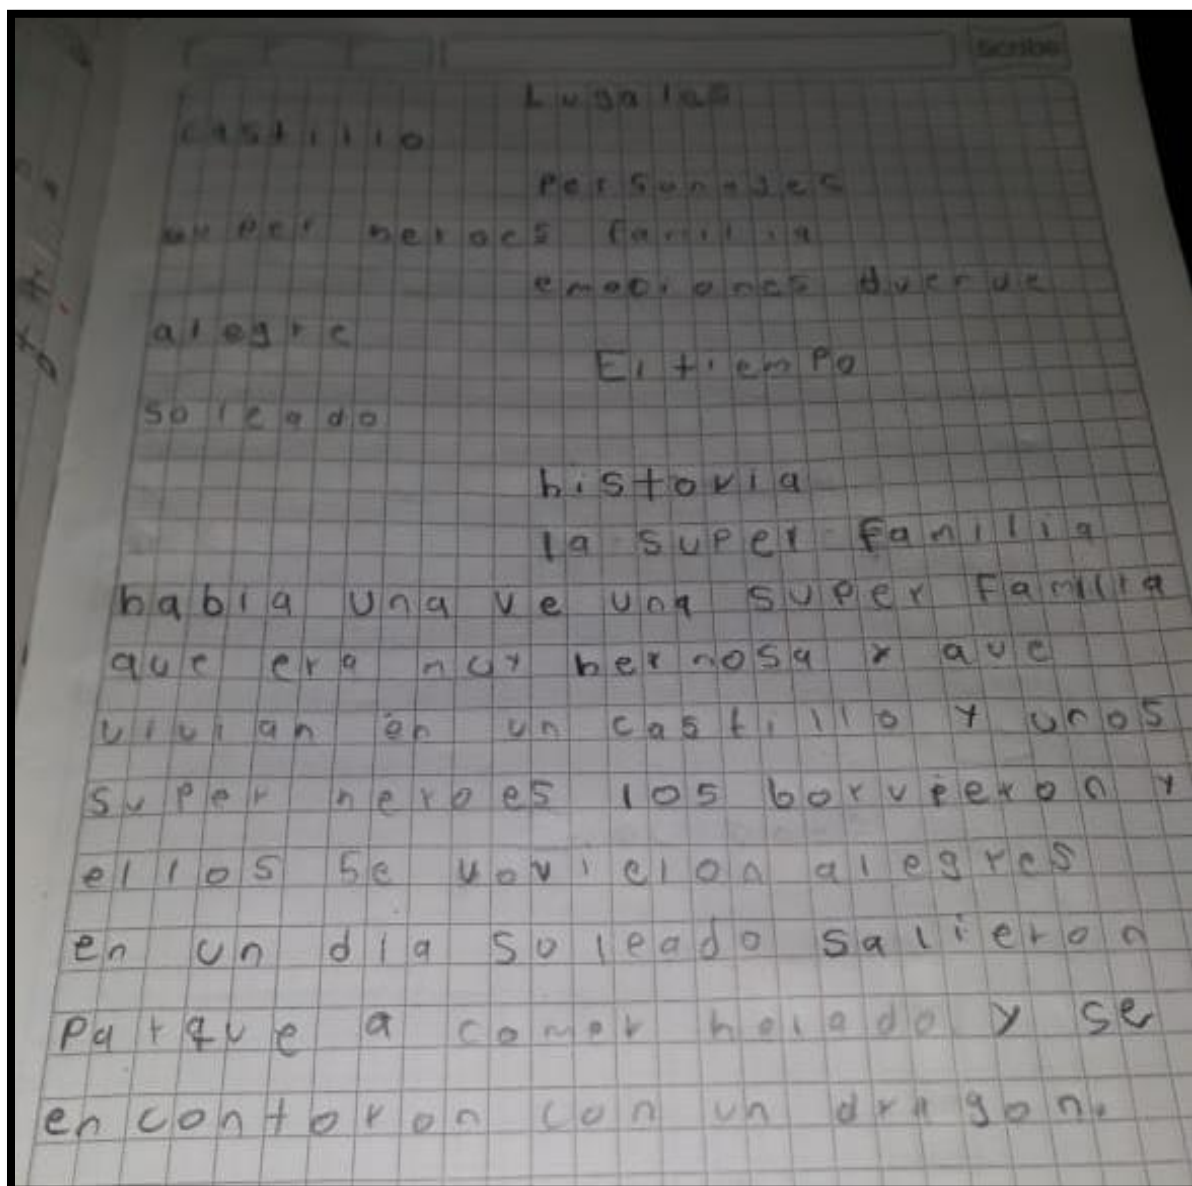 Scribe
Lugales
castillo
Personajes
super heroes familia
emociones
alegre
El tiempo
soleado
historia
la super familia
habia una ve una super familia
que era nuy hernosa y que
vivian en un castillo y unos
super heroes los borvieron y
ellos se vovieion alegres
en un dia soleado salieron
parque a comer helado y se
encontoron con un dragon.